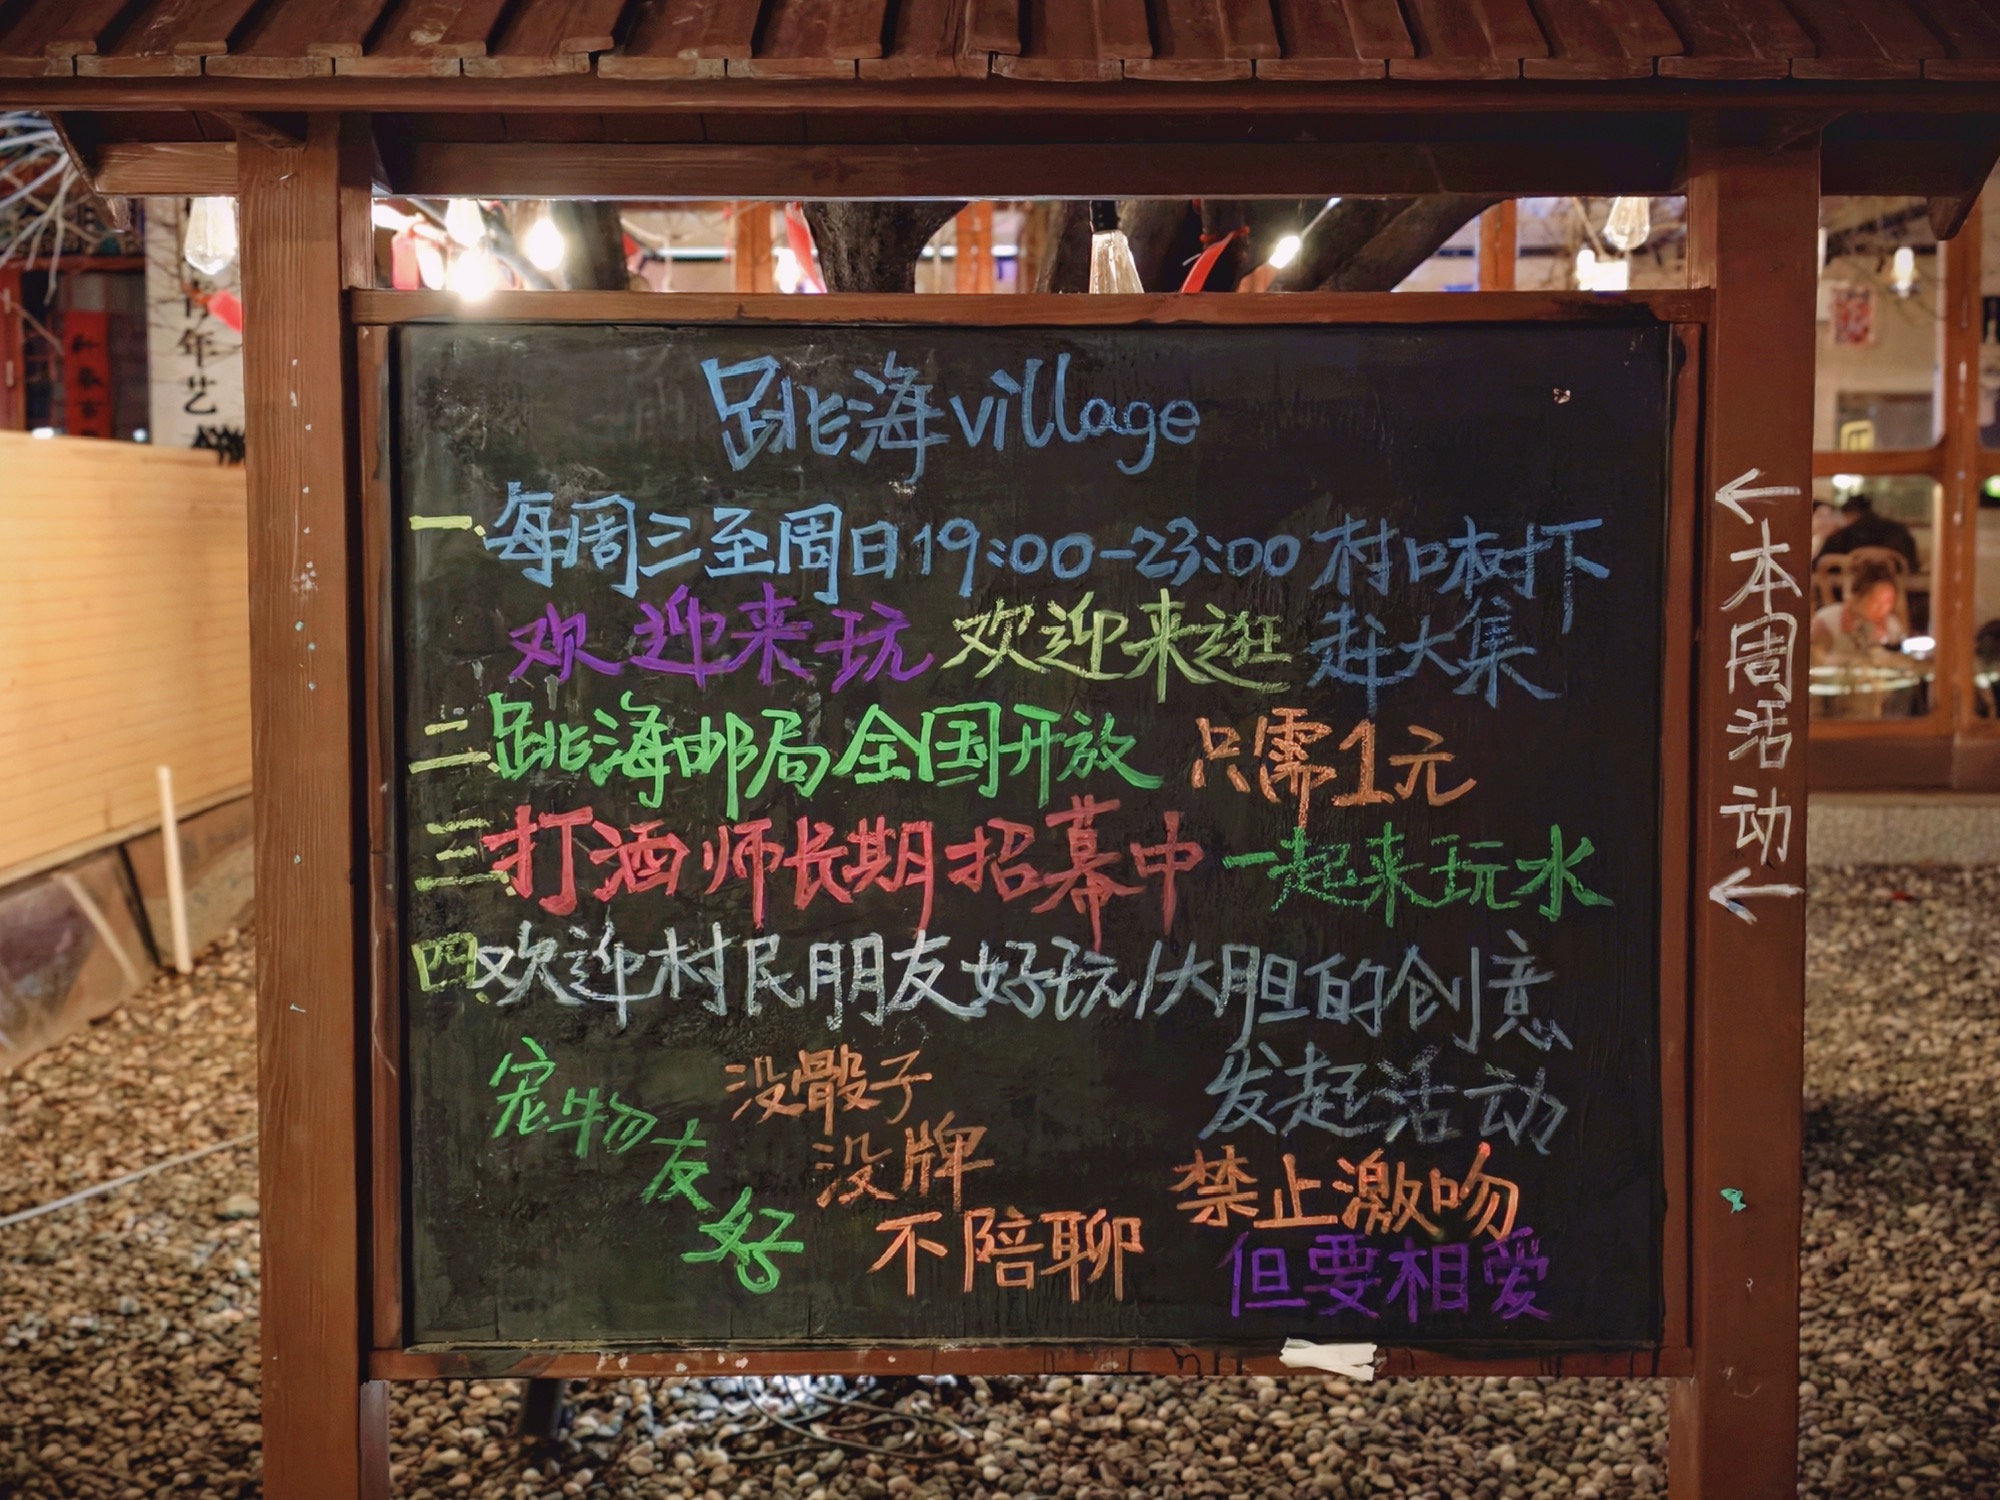 跳海village
一、每周三至周日19:00-23:00 村口树下
欢迎来玩 欢迎来逛 赶大集
二、跳海邮局全国开放 只需1元
三、打酒师长期招募中 一起来玩水
四、欢迎村民朋友好玩/大胆的创意
发起活动
宠物友好
没骰子
没牌
不陪聊
禁止激吻
但要相爱
←本周活动←
年艺